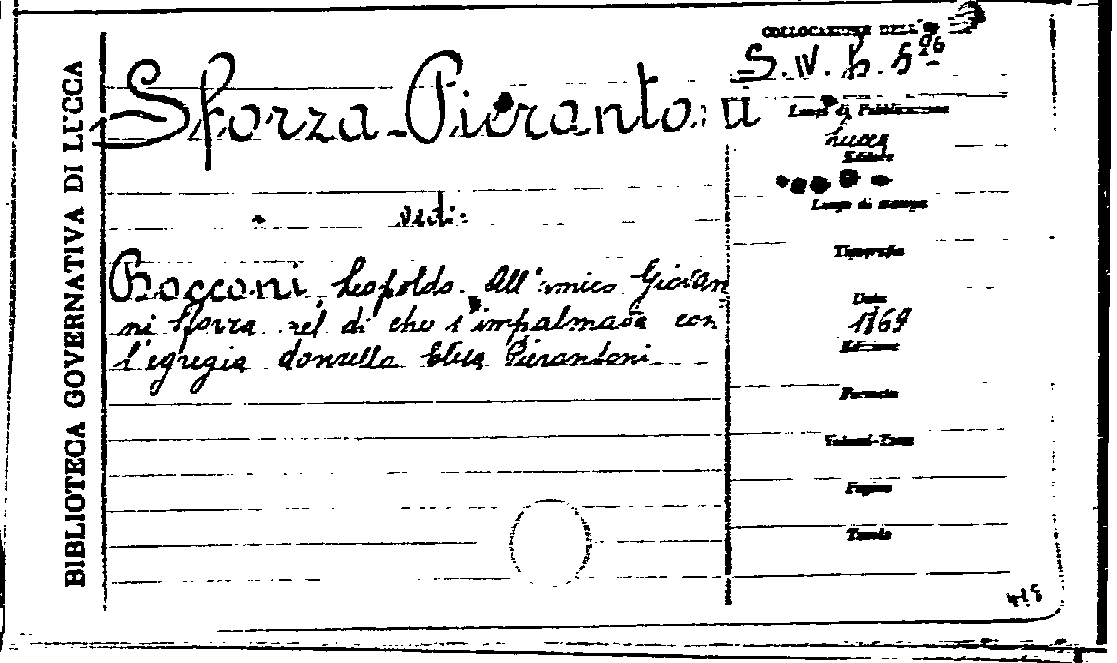 BIBLIOTECA GOVERNATIVA DI LUCCA
COLLOCAZIONE DELL'
S. IV. h. 5
Sforza-Pierantoni
Luogo di Pubblicazione
Lucca
Editore
Luogo di stampa
vedi:
Tipografia
Bacconi, Leopoldo. All'amico Giovan
Data
ni Sforza nel dì che s'impalmava con
1869
Edizione
l'egregia donzella Elisa Pierantoni
Formato
Volumi-Tomi
Pagine
Tavole